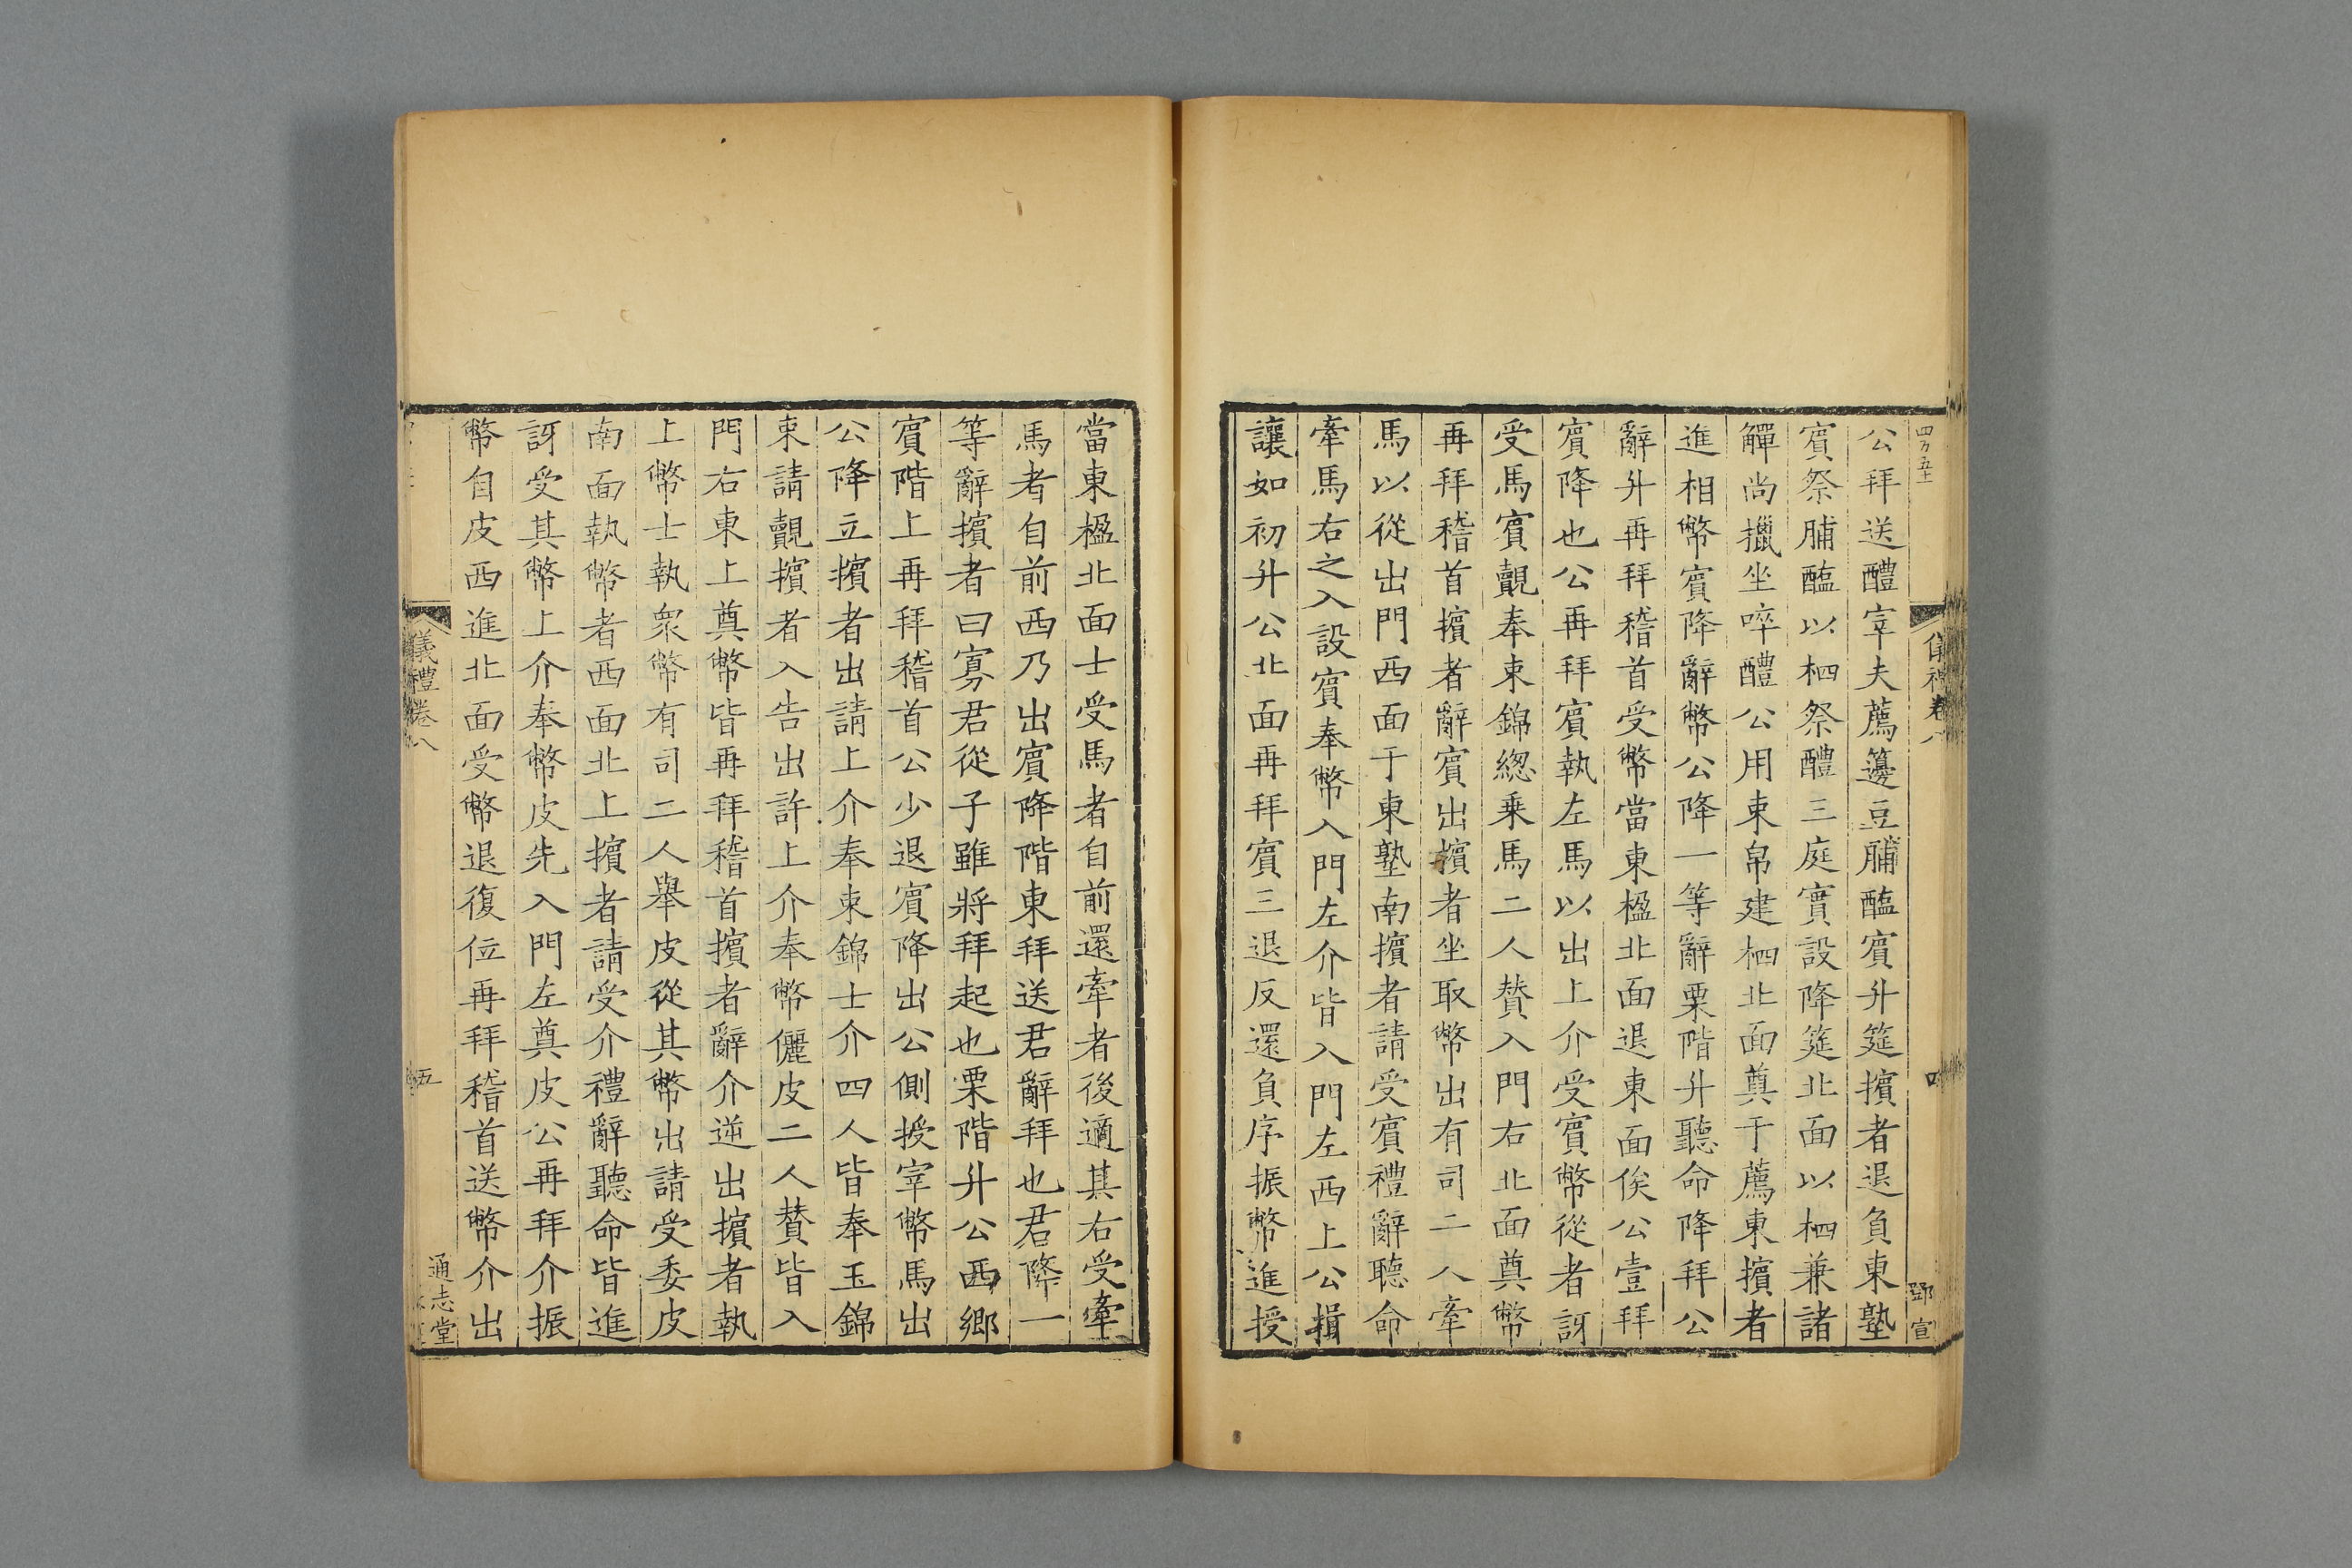 公拜送醴宰夫薦籩豆脯醢賓升筵擯者退負東塾
賓祭脯醢以柶祭醴三庭實設降筵北面以柶兼諸
觶尚擸坐啐醴公用束帛建柶北面奠于薦東擯者
進相幣賓降辭幣公降一等辭栗階升聽命降拜公
辭升再拜稽首受幣當東楹北面退東面俟公壹拜
賓降也公再拜賓執左馬以出上介受賓幣從者訝
受馬賓覿奉束錦緫乗馬二人贊入門右北面奠幣
再拜稽首擯者辭賓出擯者坐取幣出有司二人牽
馬以從出門西面于東塾南擯者請受賓禮辭聽命
牽馬右之入設賓奉幣入門左介皆入門左西上公揖
讓如初升公北面再拜賓三退反還負序振幣進授
當東楹北面士受馬者自前還牽者後適其右受牽
馬者自前西乃出賓降階東拜送君辭拜也君降一
等辭擯者曰寡君從子雖將拜起也栗階升公西鄉
賓階上再拜稽首公少退賓降出公側授宰幣馬出
公降立擯者出請上介奉束錦士介四人皆奉玉錦
束請覿擯者入告出許上介奉幣儷皮二人贊皆入
門右東上奠幣皆再拜稽首擯者辭介逆出擯者執
上幣士執衆幣有司二人舉皮從其幣出請受委皮
南面執幣者西面北上擯者請受介禮辭聽命皆進
訝受其幣上介奉幣皮先入門左奠皮公再拜介振
幣自皮西進北面受幣退復位再拜稽首送幣介出
儀禮卷八
五
通志堂